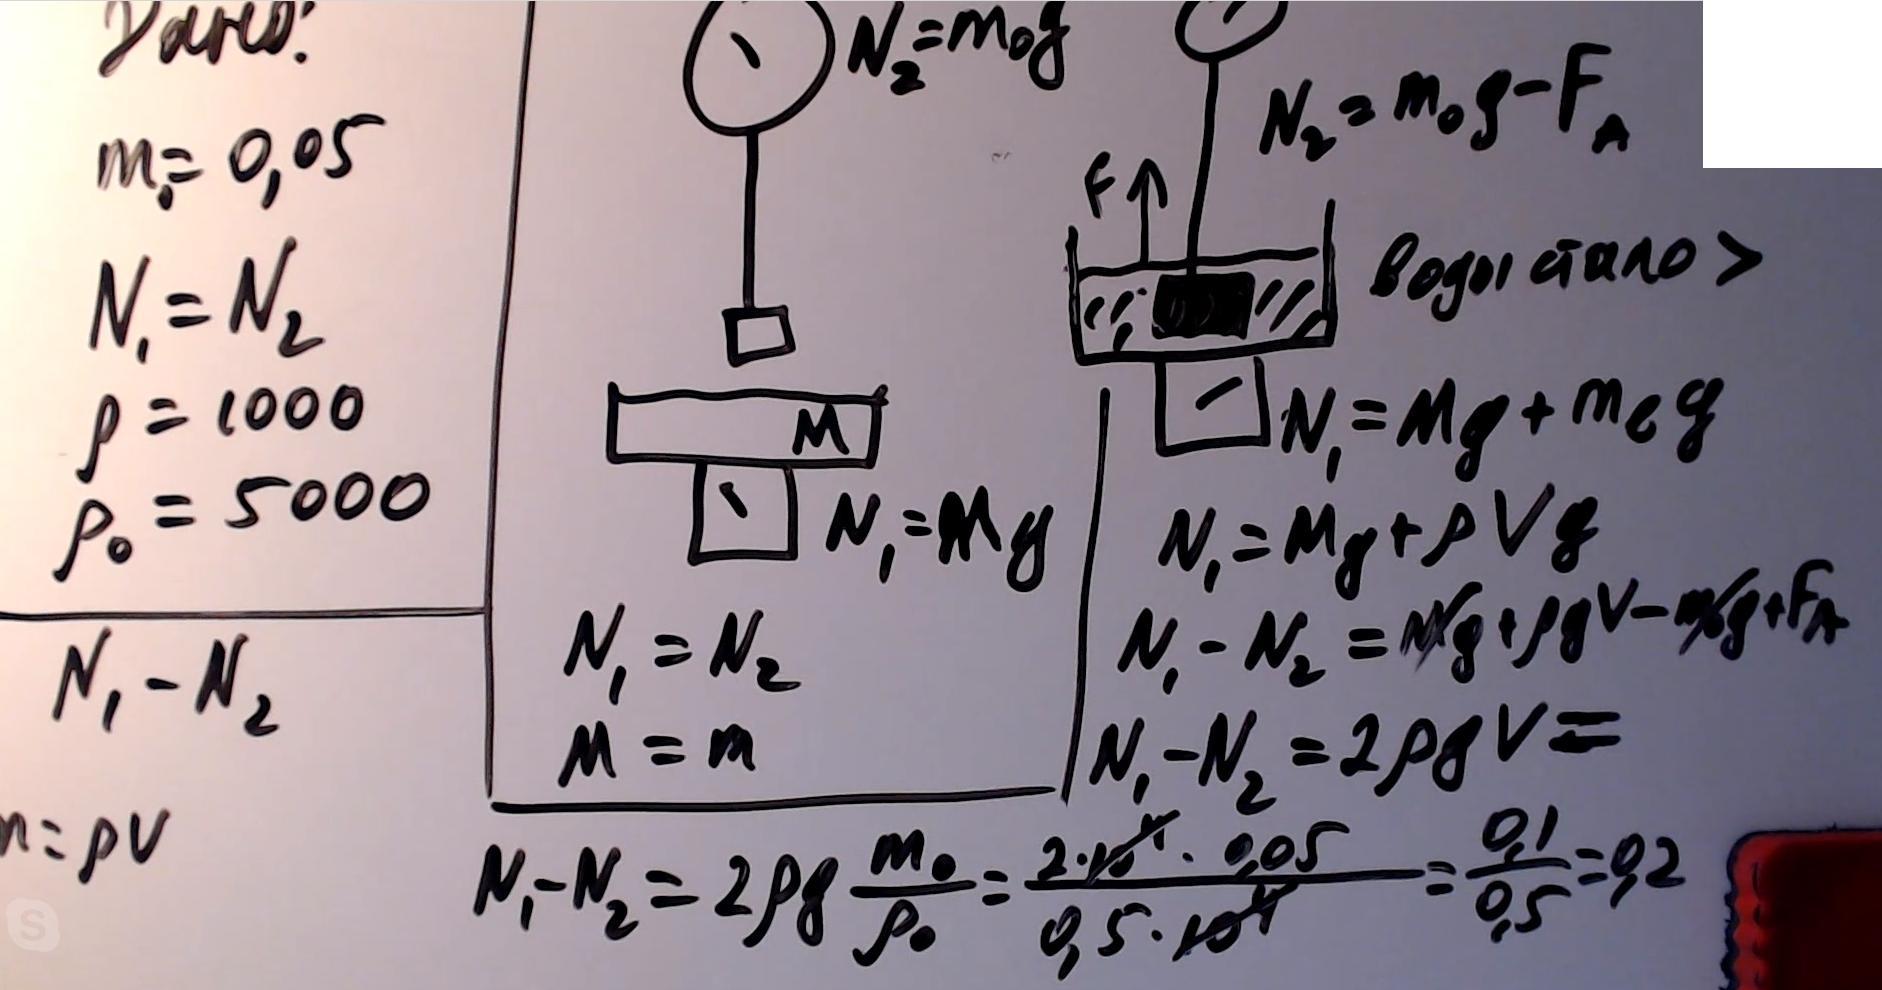 Дано:
m₁ = 0,05
N₁ = N₂
ρ = 1000
ρ₀ = 5000
N₁ - N₂
m = ρV
N₂ = m₀g
M
N₁ = Mg
N₁ = N₂
M = m
N₂ = m₀g - F_A
F
воды стало >
N₁ = Mg + m_в g
N₁ = Mg + ρVg
N₁ - N₂ = Mg + ρgV - m₀g + F_A
N₁ - N₂ = 2ρgV =
N₁ - N₂ = 2ρg m₀/ρ₀ = 2·10⁴·0,05/0,5·10⁴ = 0,1/0,5 = 0,2
S